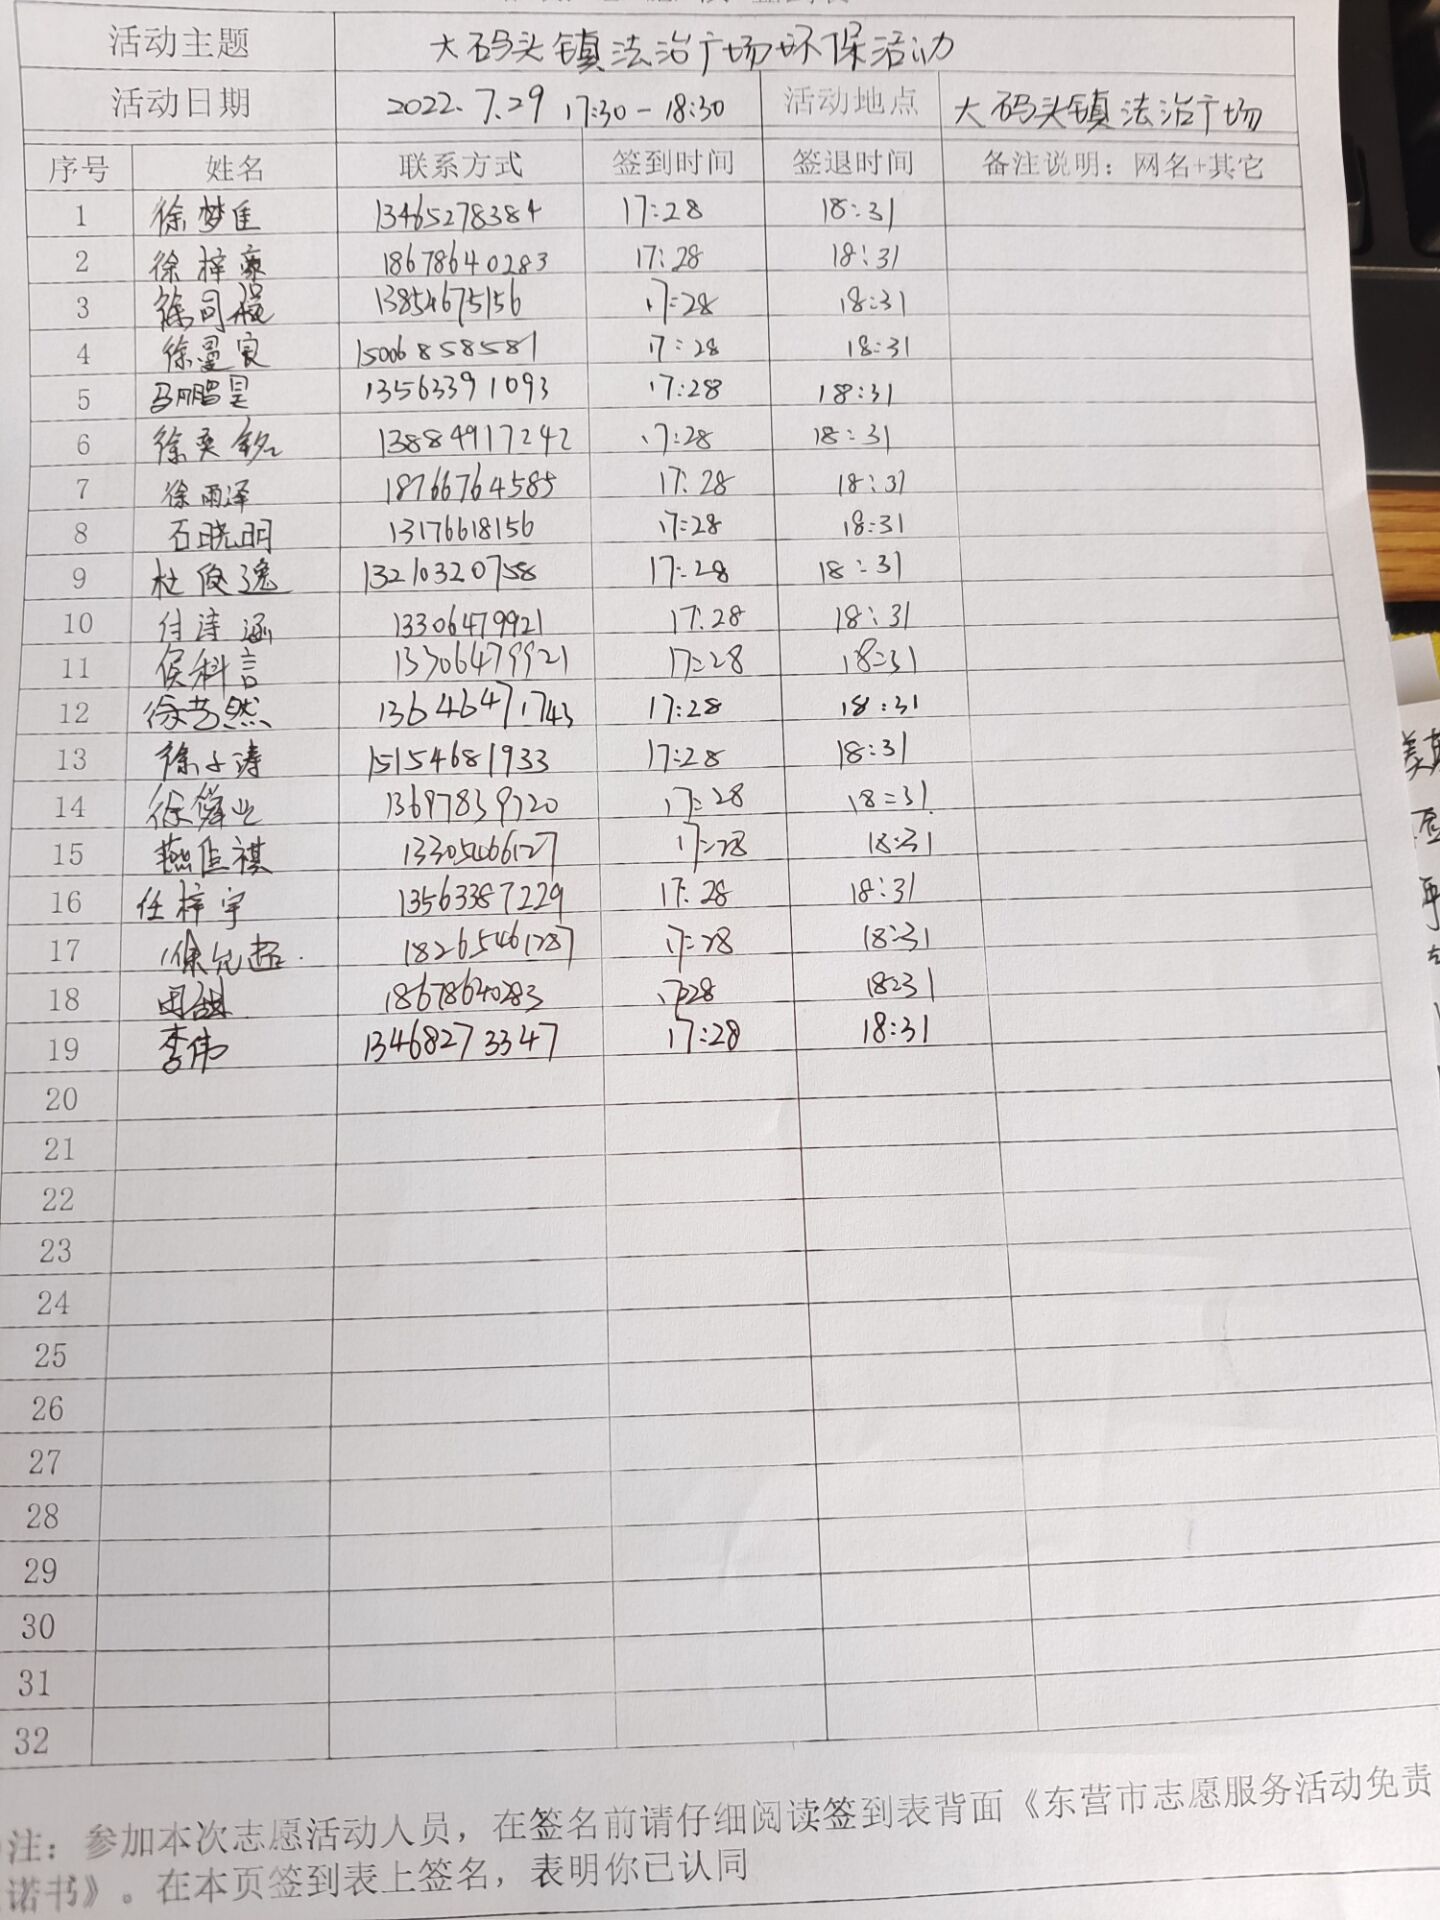 活动主题 大码头镇法治广场环保活动
活动日期 2022.7.29 17:30-18:30 活动地点 大码头镇法治广场
序号 姓名 联系方式 签到时间 签退时间 备注说明：网名+其它
1 徐梦佳 13465278384 17:28 18:31
2 徐梓豪 18678640283 17:28 18:31
3 徐同 13854675156 17:28 18:31
4 徐曼宸 15006858581 17:28 18:31
5 马鹏昊 13563391093 17:28 18:31
6 徐奕铭 13884917242 17:28 18:31
7 徐雨泽 18766764585 17:28 18:31
8 石晓明 13176618156 17:28 18:31
9 杜俊逸 13210320758 17:28 18:31
10 付诗涵 13306479921 17:28 18:31
11 侯科言 13306479921 17:28 18:31
12 徐艺然 13646471743 17:28 18:31
13 徐子涛 15154681933 17:28 18:31
14 徐 13697839720 17:28 18:31
15 燕佳祺 13305466127 17:28 18:31
16 任梓宇 13563387229 17:28 18:31
17 徐允超 18265461287 17:28 18:31
18 田甜 18678640283 17:28 18:31
19 李伟 13468273347 17:28 18:31
20
21
22
23
24
25
26
27
28
29
30
31
32
注：参加本次志愿活动人员，在签名前请仔细阅读签到表背面《东营市志愿服务活动免责
诺书》。在本页签到表上签名，表明你已认同